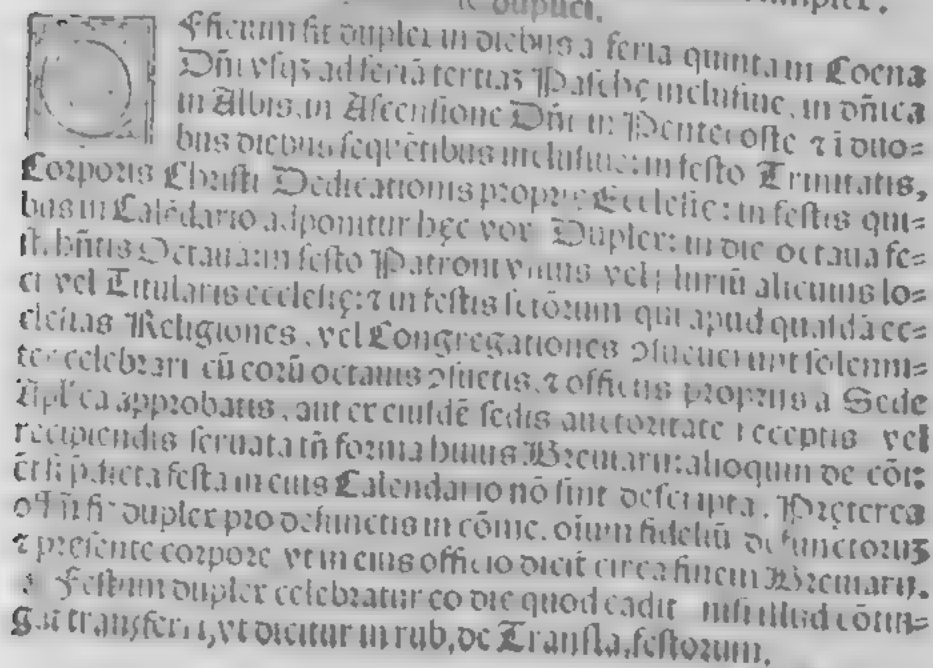 duplici.
Officium fit duplex in diebus a feria quinta in Coena
Dñi vsq3 ad feriã tertia3 Paschę inclusiue, in dñica
in Albis, in Ascensione Dñi in Pentecoste ⁊ i duo=
bus diebus sequẽtibus inclusiue: in festo Trinitatis,
Corporis Christi Dedicationis proprię Ecclesię: in festis qui=
bus in Calẽdario apponitur hęc vox Duplex: in die octaua fe=
sti hñtis Octauã: in festo Patroni vnius vel pluriũ alicuius lo=
ci vel Titularis ecclesię: ⁊ in festis sctõrum qui apud quasdã ec=
clesias Religiones, vel Congregationes ↄsueuerunt solenni=
ter celebrari cũ eorũ octauis ↄsuetis, ⁊ officiis propriis a Sede
Apl'ca approbatis, aut ex eiusdẽ sedis auctoritate receptis vel
recipiendis seruata tñ forma huius Breuiarii: alioquin de cõi:
etsi p̃dicta festa in eius Calendario nõ sint descripta. Pręterea
offm fit duplex pro defunctis in cõme. oium fideliũ defunctoru3
⁊ presente corpore, vt in eius officio dicit circa finem Breuiarii.
Festum duplex celebratur eo die quod cadit nisi illud cõtin=
gat transferri, vt dicitur in rub. de Transla. festorum.